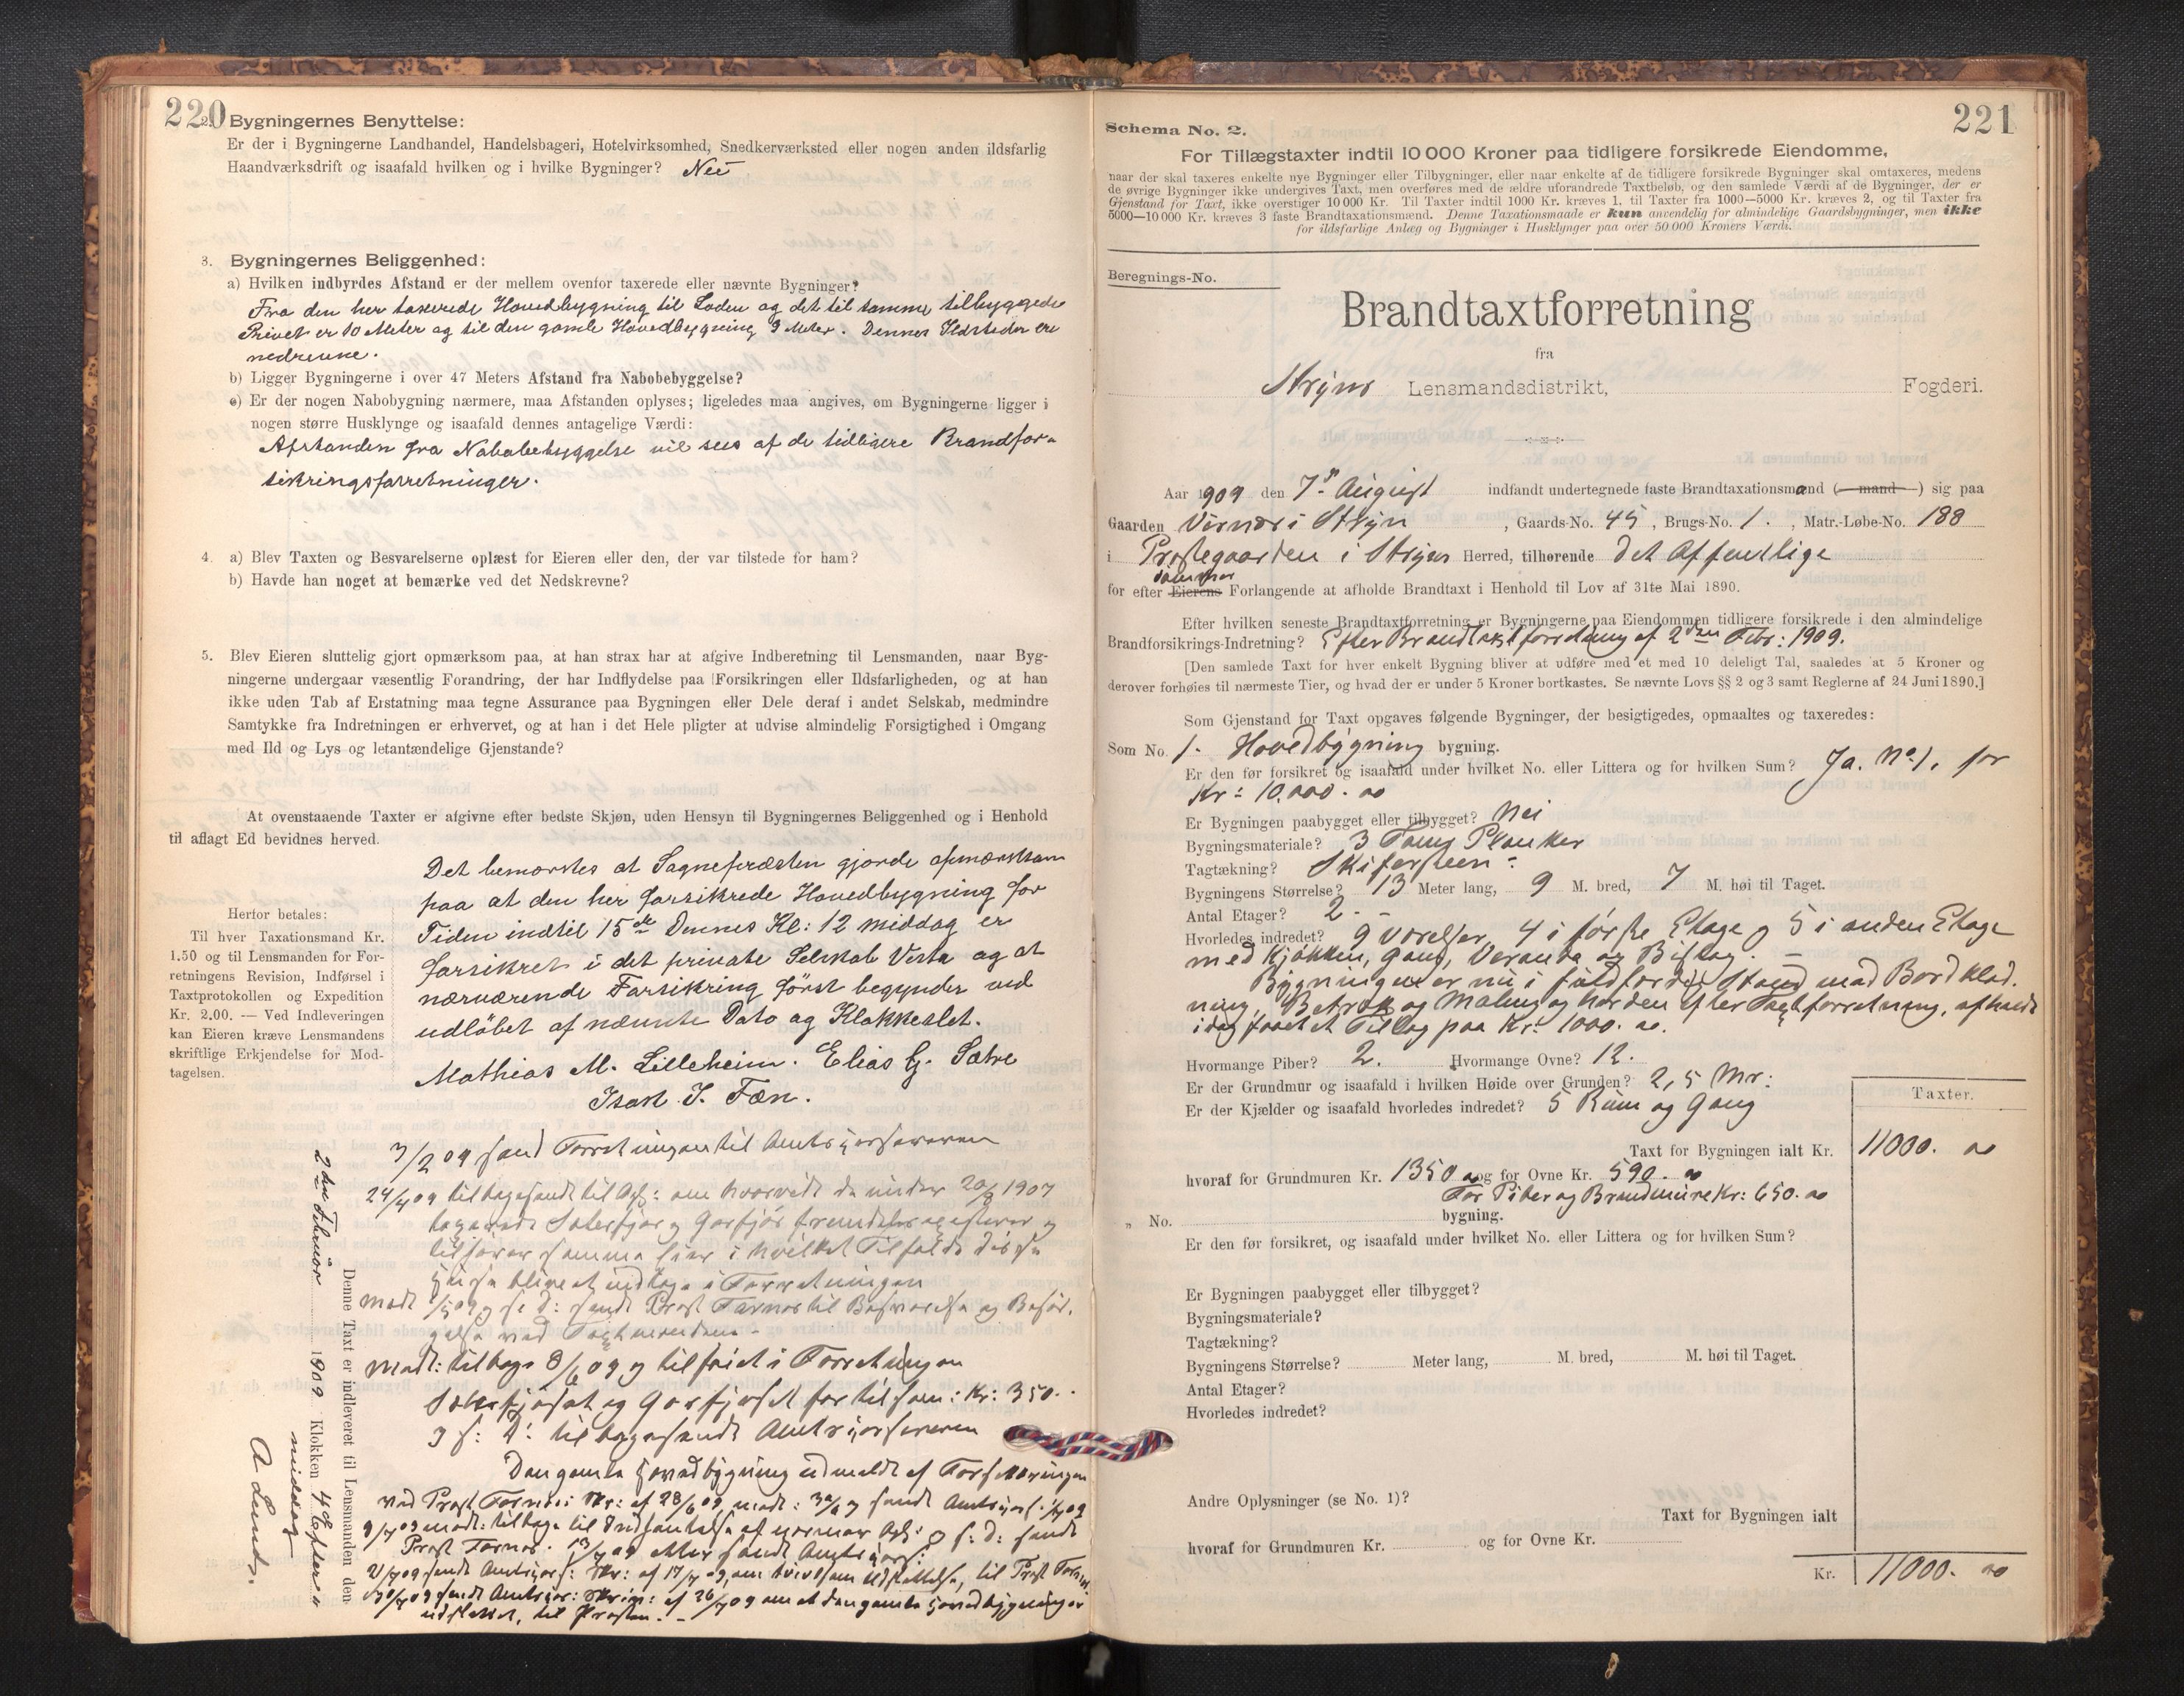 220
2. Bygningernes Benyttelse:
Er der i Bygningerne Landhandel, Handelsbageri, Hotelvirksomhed, Snedkerværksted eller nogen anden ildsfarlig
Haandværksdrift og isaafald hvilken og i hvilke Bygninger? Nei
3. Bygningernes Beliggenhed:
a) Hvilken indbyrdes Afstand er der mellem ovenfor taxerede eller nævnte Bygninger?
Fra den her taxerede Hovedbygning til Laden og det til samme tilbyggede
Privet er 10 Meter og til den gamle Hovedbygning 9 Meter. Dennes Ildsteder ere
nedrevne.
b) Ligger Bygningerne i over 47 Meters Afstand fra Nabobebyggelse?
c) Er der nogen Nabobygning nærmere, maa Afstanden oplyses; ligeledes maa angives, om Bygningerne ligger i
nogen større Husklynge og isaafald dennes antagelige Værdi:
Afstanden fra Nabobebyggelse vil sees af de tidligere Brandfor-
sikringsforretninger.
4. a) Blev Taxten og Besvarelserne oplæst for Eieren eller den, der var tilstede for ham?
b) Havde han noget at bemærke ved det Nedskrevne?
5. Blev Eieren sluttelig gjort opmærksom paa, at han strax har at afgive Indberetning til Lensmanden, naar Byg-
ningerne undergaar væsentlig Forandring, der har Indflydelse paa Forsikringen eller Ildsfarligheden, og at han
ikke uden Tab af Erstatning maa tegne Assurance paa Bygningen eller Dele deraf i andet Selskab, medmindre
Samtykke fra Indretningen er erhvervet, og at han i det Hele pligter at udvise almindelig Forsigtighed i Omgang
med Ild og Lys og letantændelige Gjenstande?
At ovenstaaende Taxter er afgivne efter bedste Skjøn, uden Hensyn til Bygningernes Beliggenhed og i Henhold
til aflagt Ed bevidnes herved.
Det bemærkes at Sognepræsten gjorde opmærksom
paa at den her forsikrede Hovedbygning for
Tiden indtil 15de Dennes Kl: 12 middag er
forsikret i det private Selskab Vesta og at
nærværende Forsikring først begynder ved
udløbet af nævnte Dato og Klokkeslet.
Mathias M. Lilleheim. Elias G. Sætre
Isak I. Fæn.
Herfor betales:
Til hver Taxationsmand Kr.
1.50 og til Lensmanden for For-
retningens Revision, Indførsel i
Taxtprotokollen og Expedition
Kr. 2.00. — Ved Indleveringen
kan Eieren kræve Lensmandens
skriftlige Erkjendelse for Mod-
tagelsen.
3/2 09 send Forretningen til Amtets
24/4 09 tilbagesendt til
tilføres samme
blive at indtage i Forretningen
Modt: tilbage 8/6 09 og tilføiet i Forretningen
for tilsam: Kr: 350.
tilbagesendt
Den gamle Hovedbygning udmeldt af Forsikringen
ved Prost
udslettet, til Prosten.
Denne Taxt er indleveret til Lensmanden den
2den Februar 1909 Klokken 4 Efter-
middag
A Lunde.
221
Schema No. 2.
For Tillægstaxter indtil 10 000 Kroner paa tidligere forsikrede Eiendomme,
naar der skal taxeres enkelte nye Bygninger eller Tilbygninger, eller naar enkelte af de tidligere forsikrede Bygninger skal omtaxeres, medens
de øvrige Bygninger ikke undergives Taxt, men overføres med de ældre uforandrede Taxtbeløb, og den samlede Værdi af de Bygninger, der er
Gjenstand for Taxt, ikke overstiger 10 000 Kr. Til Taxter indtil 1000 Kr. kræves 1, til Taxter fra 1000—5000 Kr. kræves 2, og til Taxter fra
5000—10 000 Kr. kræves 3 faste Brandtaxationsmænd. Denne Taxationsmaade er kun anvendelig for almindelige Gaardsbygninger, men ikke
for ildsfarlige Anlæg og Bygninger i Husklynger paa over 50 000 Kroners Værdi.
Beregnings-No.
Brandtaxtforretning
fra
Stryns Lensmandsdistrikt, Fogderi.
Aar 1909 den 7de August indfandt undertegnede faste Brandtaxationsmand (mænd) sig paa
Gaarden Visnes i Stryn, Gaards-No. 45, Brugs-No. 1., Matr.-Løbe-No. 188
i Prestegaarden i Stryn Herred, tilhørende det Offentlige
for efter Eierens Forlangende at afholde Brandtaxt i Henhold til Lov af 31te Mai 1890.
Efter hvilken seneste Brandtaxtforretning er Bygningerne paa Eiendommen tidligere forsikrede i den almindelige
Brandforsikrings-Indretning? Efter Brandtaxtforretning af 2den Febr: 1909.
[Den samlede Taxt for hver enkelt Bygning bliver at udføre med et med 10 deleligt Tal, saaledes at 5 Kroner og
derover forhøies til nærmeste Tier, og hvad der er under 5 Kroner bortkastes. Se nævnte Lovs §§ 2 og 3 samt Reglerne af 24 Juni 1890.]
Som Gjenstand for Taxt opgaves følgende Bygninger, der besigtigedes, opmaaltes og taxeredes:
Som No. 1. Hovedbygning bygning.
Er den før forsikret og isaafald under hvilket No. eller Littera og for hvilken Sum? Ja. No 1. for
Kr: 10.000. 00
Er Bygningen paabygget eller tilbygget? Nei
Bygningsmateriale? 3 Toms Planker
Tagtækning? Skifersteen
Bygningens Størrelse? 13 Meter lang, 9 M. bred, 7 M. høi til Taget.
Antal Etager? 2.
Hvorledes indredet? 9 værelser, 4 i første Etage og 5 i anden Etage
med Kjøkken, Gang, Veranda og Bislag.
Bygningen er nu i fuldfærdig Stand med Bordklæd-
ning, Betræk og Maling og har den efter Taxtforretning, afholdt
idag faaet et Tillæg paa Kr: 1000. 00.
Hvormange Piber? 2. Hvormange Ovne? 12.
Er der Grundmur og isaafald i hvilken Høide over Grunden? 2,5 Mr:
Er der Kjælder og isaafald hvorledes indredet? 5 Rum og Gang
Taxter.
Taxt for Bygningen ialt Kr. 11000. 00
hvoraf for Grundmuren Kr. 1350 og for Ovne Kr. 590. 00
For Piber og Brandmure Kr: 650. 00
„ No. bygning.
Er den før forsikret, og isaafald under hvilket No. eller Littera og for hvilken Sum?
Er Bygningen paabygget eller tilbygget?
Bygningsmateriale?
Tagtækning?
Bygningens Størrelse? Meter lang, M. bred, M. høi til Taget.
Antal Etager?
Hvorledes indredet?
Andre Oplysninger (se No. 1)?
Taxt for Bygningen ialt
hvoraf for Grundmuren Kr. og for Ovne Kr.
Kr. 11000. 00